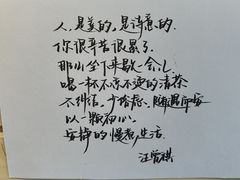 人，是美的，是诗意的。
你很辛苦很累了，
那么坐下来歇一会儿
喝一杯不凉不烫的清茶
不纠结、少俗虑、随遇而安
以一颗初心，
安静的慢煮生活。
汪曾祺